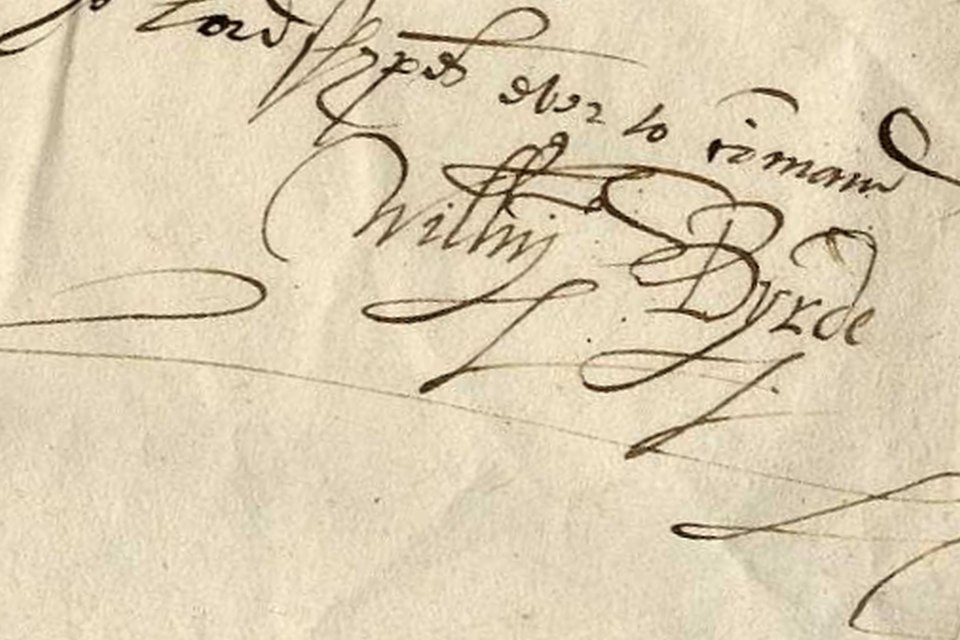 Lordshypes ever to comand
Willm Byrde